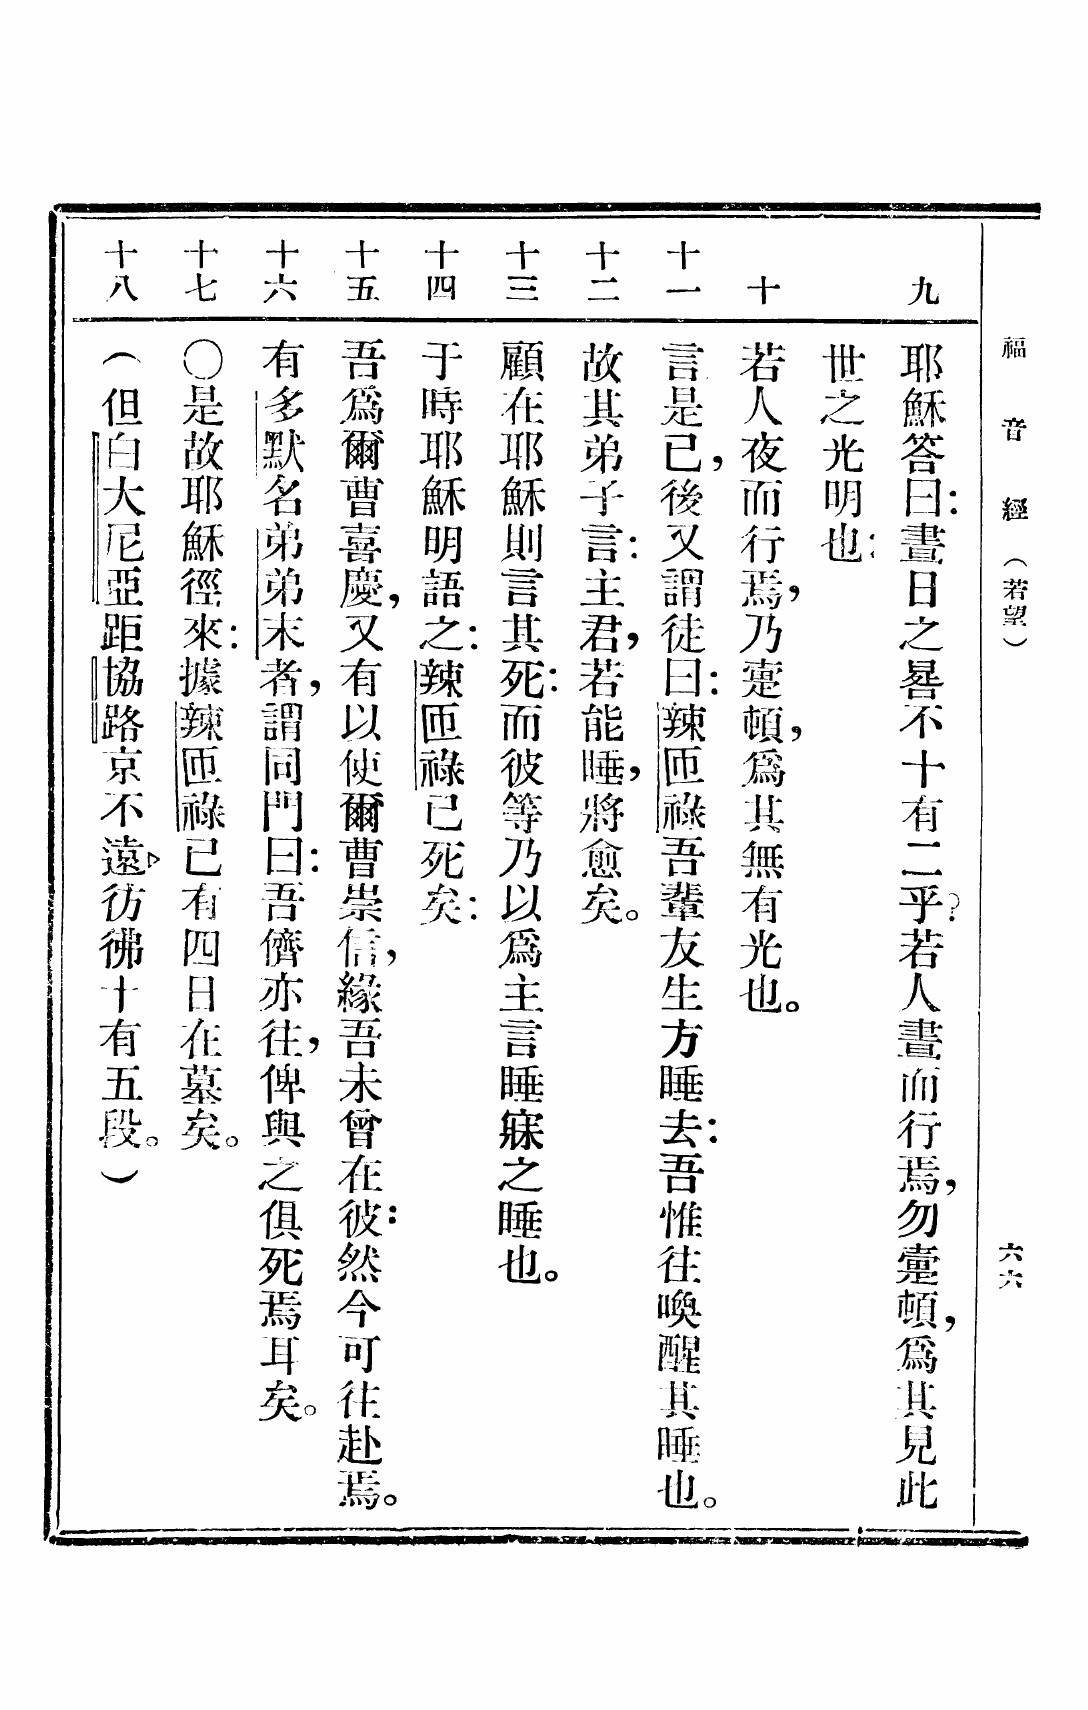 福音經（若望）
六六
九
耶穌答曰：晝日之晷不十有二乎？若人晝而行焉，勿疐頓，爲其見此
世之光明也：
十
若人夜而行焉，乃疐頓，爲其無有光也。
十一
言是已，後又謂徒曰：辣匝祿吾輩友生方睡去：吾惟往喚醒其睡也。
十二
故其弟子言：主君，若能睡，將愈矣。
十三
顧在耶穌則言其死：而彼等乃以爲主言睡寐之睡也。
十四
于時耶穌明語之：辣匝祿已死矣：
十五
吾爲爾曹喜慶，又有以使爾曹崇信，緣吾未曾在彼：然今可往赴焉。
十六
有多默名弟弟末者，謂同門曰：吾儕亦往，俾與之俱死焉耳矣。
十七
○是故耶穌徑來：據辣匝祿已有四日在墓矣。
十八
（但白大尼亞距協路京不遠，彷彿十有五段。）